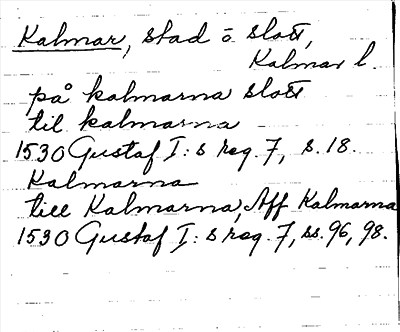 Kalmar, stad o. slott,
Kalmar l.
på kalmarna slott
til kalmarna
1530 Gustaf I:s reg. 7, s. 18.
Kalmarna
till Kalmarna, Aff Kalmarna
1530 Gustaf I:s reg. 7, ss. 96, 98.